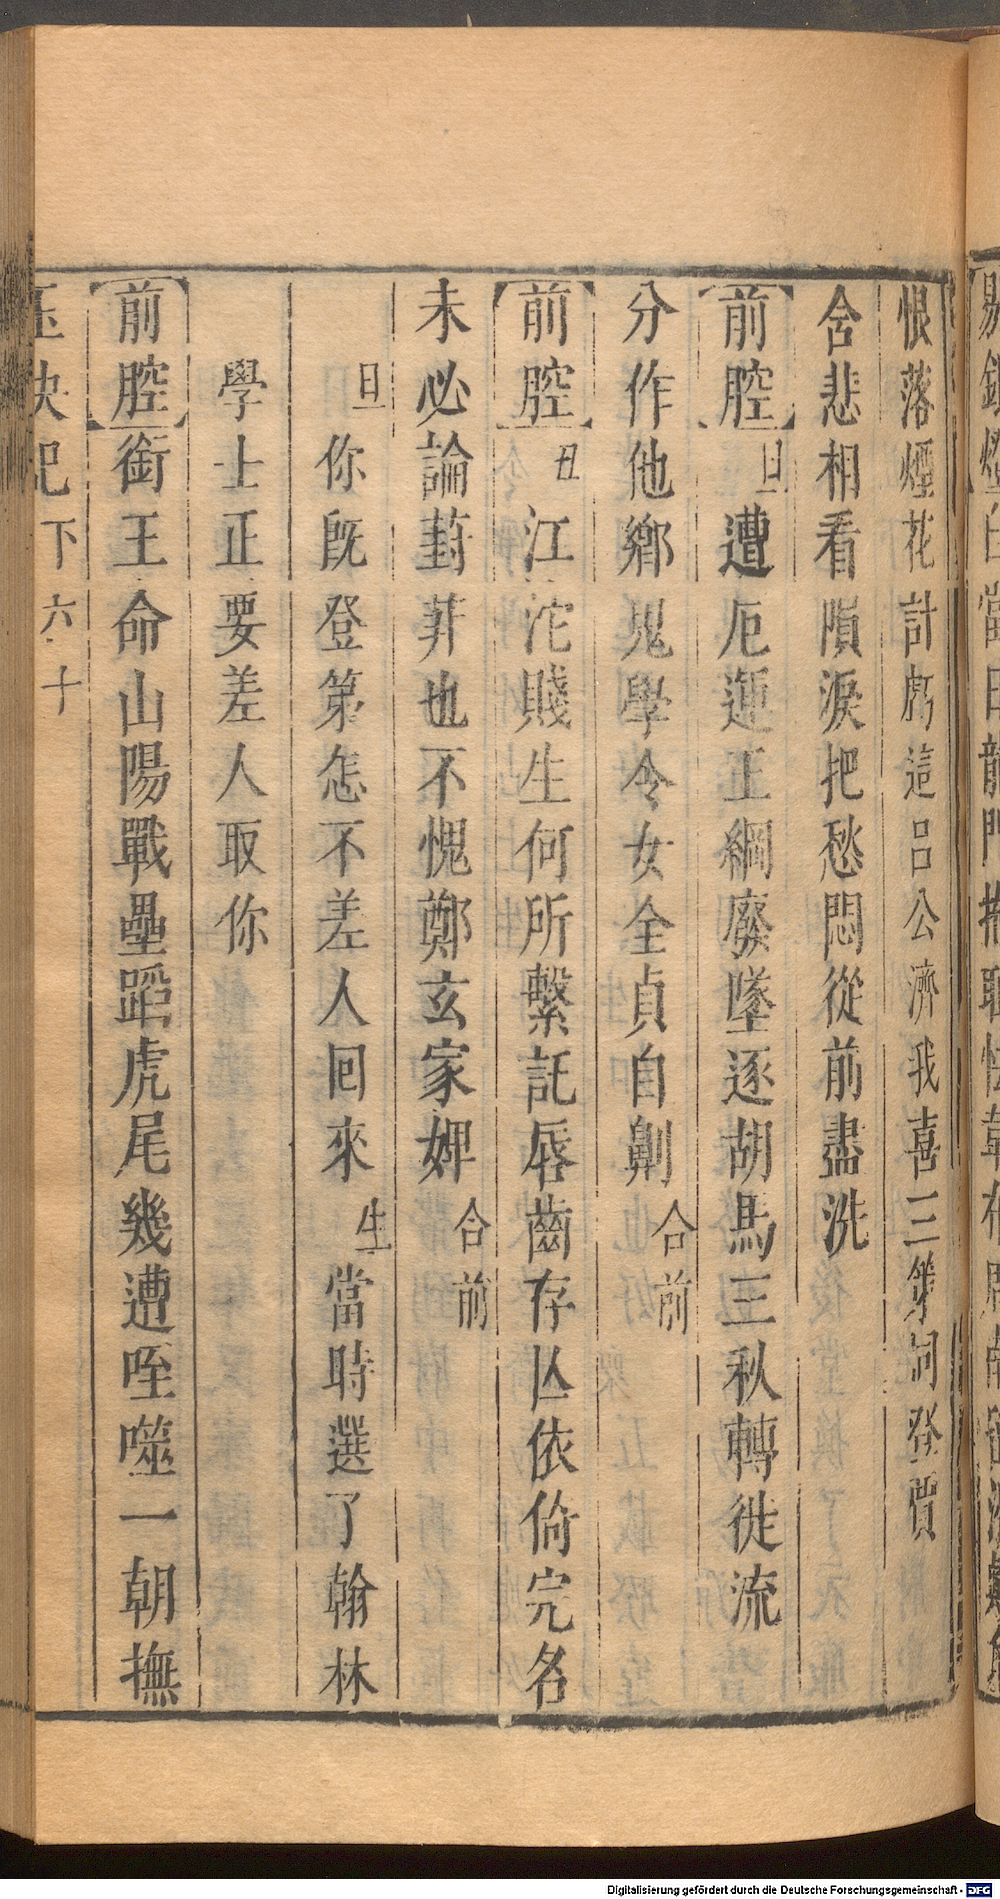 恨落煙花計虧這呂公濟我喜三第詞發賈
含悲相看隕淚把愁悶從前盡洗
【前腔】旦遭厄運王綱廢墜逐胡馬三秋轉徙流
分作他鄉鬼學令女全貞自劓合前
【前腔】丑江沱賤生何所繫託唇齒存亾依倚完名
未必論葑菲也不愧鄭玄家婢合前
旦你旣登第怎不差人回來生當時選了翰林
學士正要差人取你
【前腔】銜王命山陽戰壘蹈虎尾幾遭咥噬一朝撫
玉玦記下六十
Digitalisierung gefördert durch die Deutsche Forschungsgemeinschaft - DFG